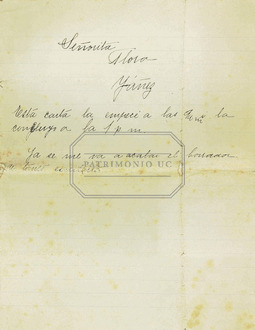 Señorita
Flora
Yáñez
Esta carta la empecé a las 9 m la
concluyo a la 1 p.m.
Ya se me va a acabar el borrador
PATRIMONIO UC